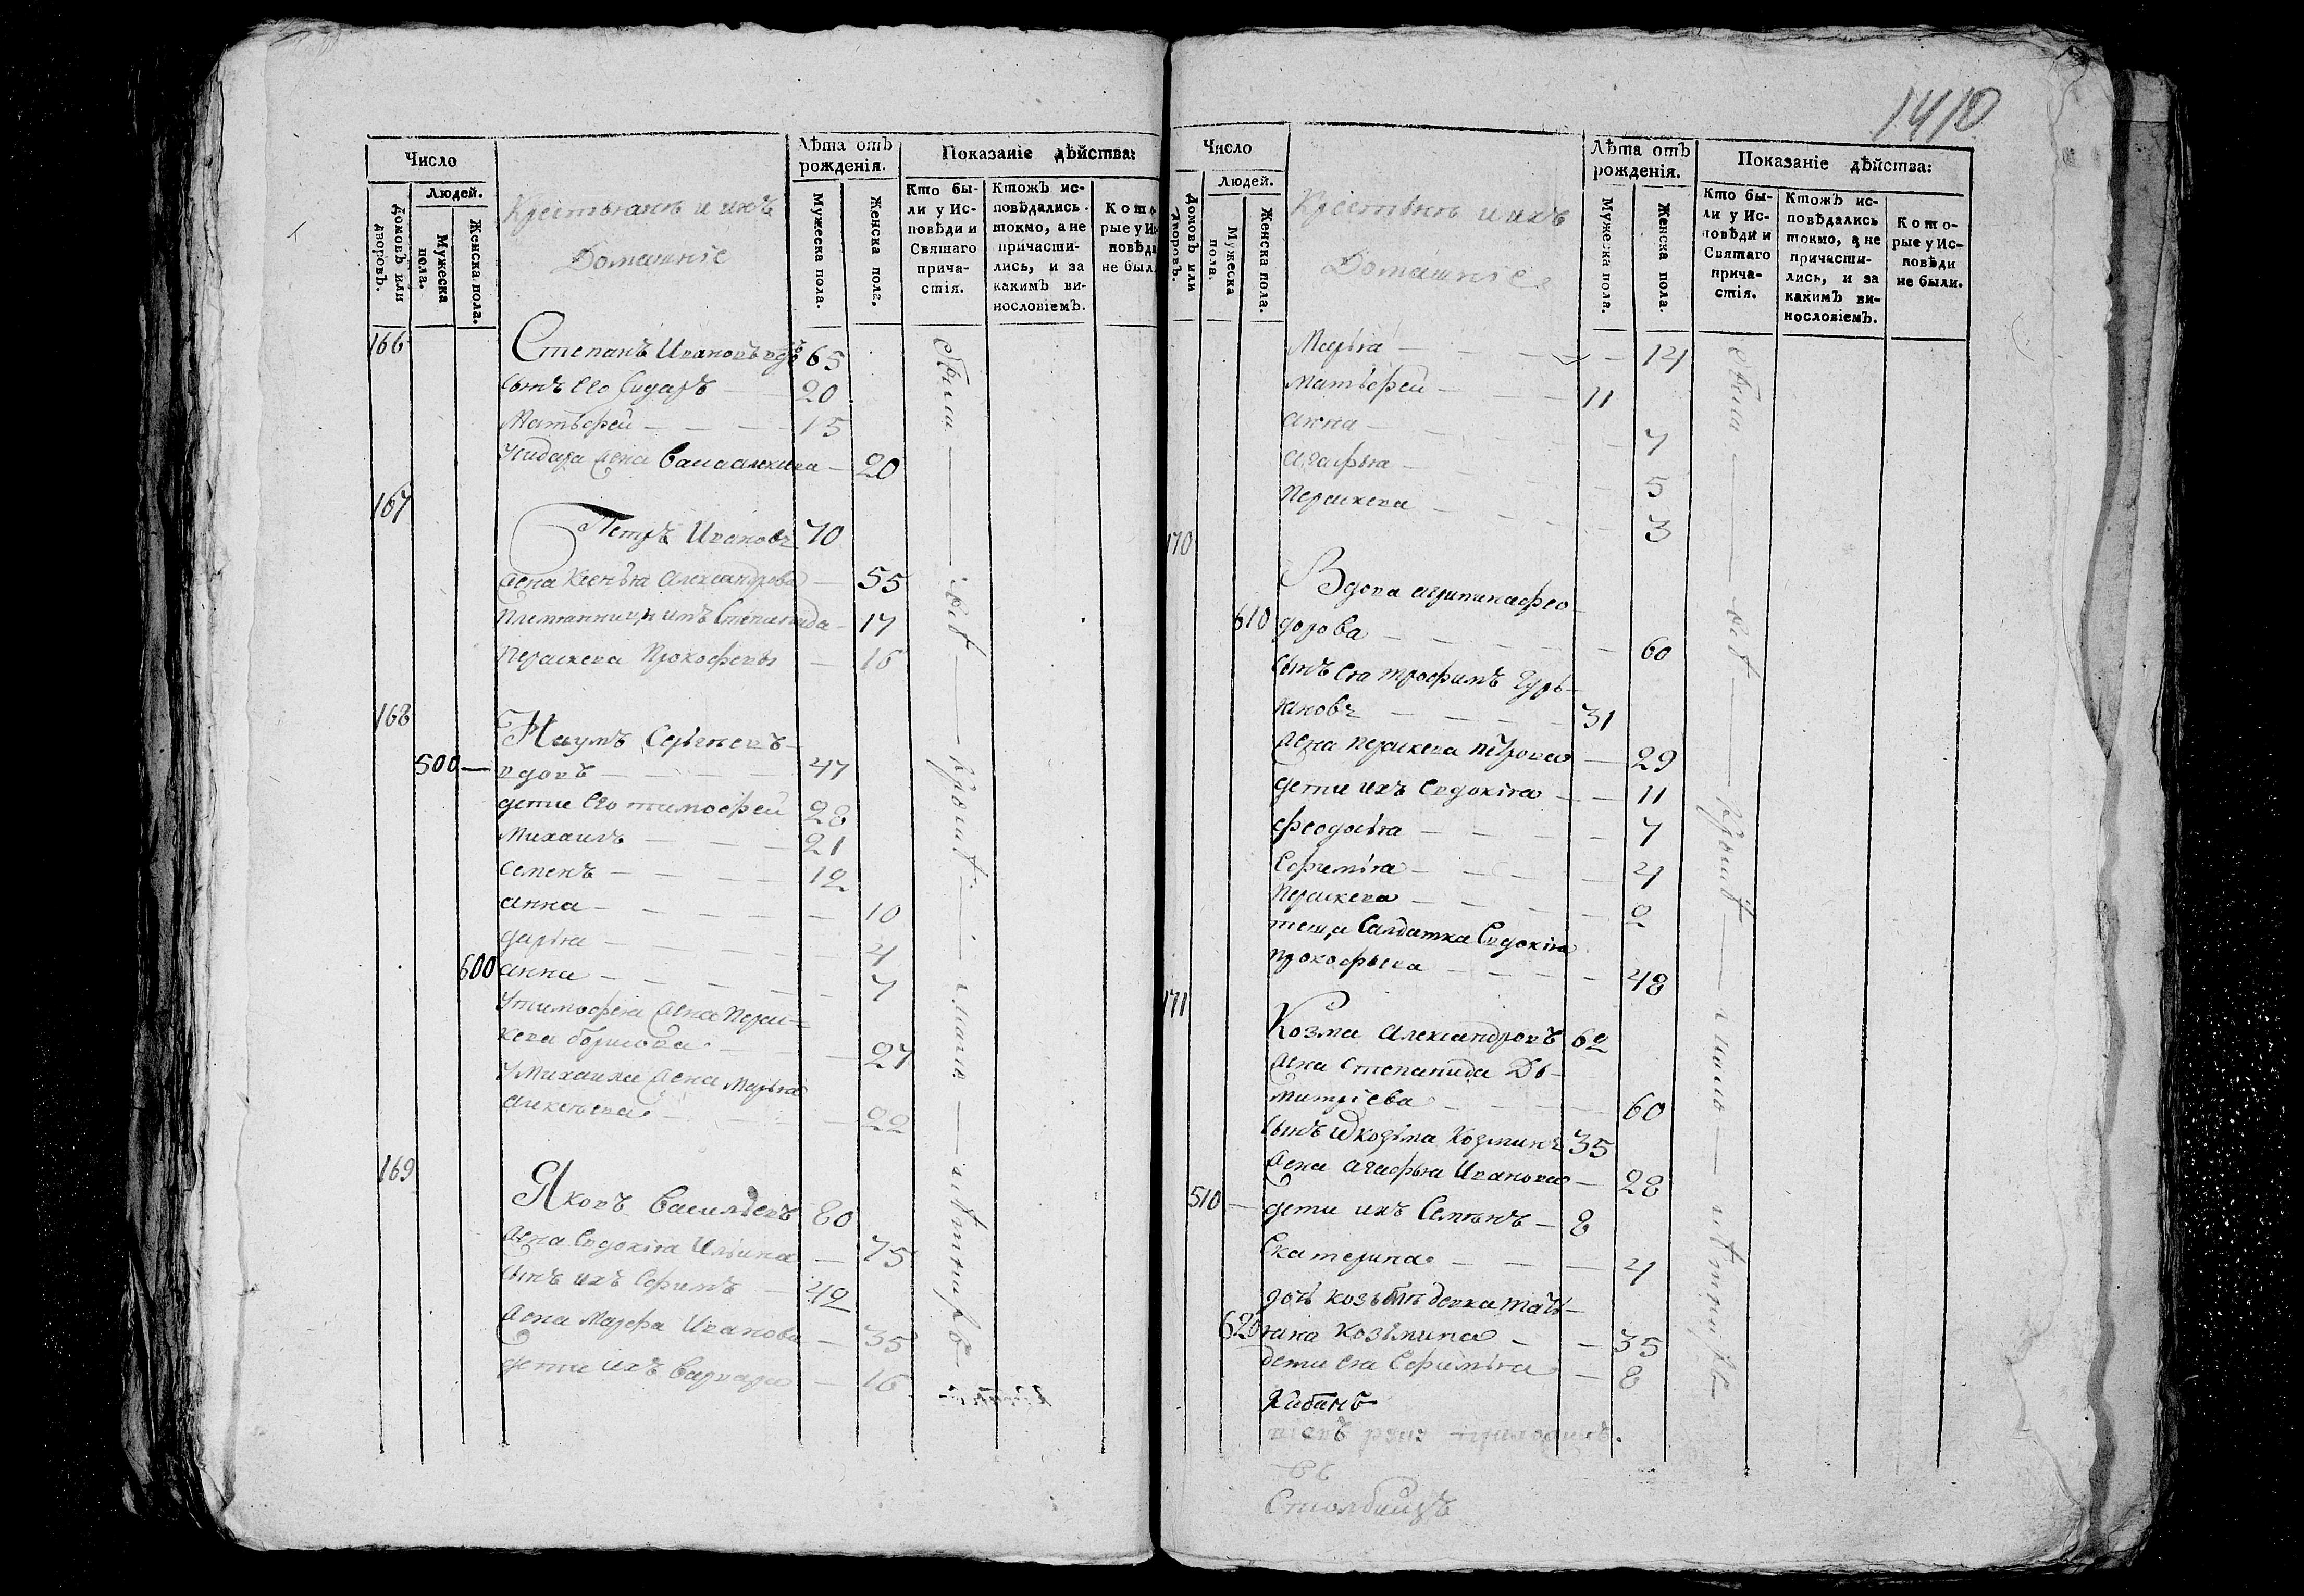 1410
Число
Людей.
Домовъ или дворовъ.
Мужеска пола.
Женска пола.
Крестьянѣ и ихъ
Домашніе
Лѣта отъ рожденія.
Мужеска пола.
Женска пола.
Показаніе дѣйства:
Кто бы-
ли у Ис-
повѣди и
Святаго
прича-
стія.
Ктожъ ис-
повѣдались
токмо, а не
причасти-
лись, и за
какимъ ви-
нословіемъ.
Кото-
рые у Ис-
повѣди
не был
166 Степанъ Ивановъ вдвъ 65
сынъ его Сидаръ 20
Матьфей 15
Усидара жена Васса 20
167
Петръ Ивановъ 70
жена Ксенья Александрова 55
племянницы ихъ Степанида 17
Параскева Прокофевы 16
168 Наумъ Сергѣевъ
500 — вдовъ 47
дети его тимофей 28
Михаилъ 21
семенъ 12
анна 10
дарья 4
600 анна 7
Утимофея жена Парас-
кева борисова 27
Умихаила жена Марья
алексеева 22
169
Яковъ Васильевъ 80
жена Евдокія Ильина 75
сынъ ихъ Ефимъ 42
жена Марфа Иванова 35
дети ихъ Варвара 16
Число
Людей.
Домовъ или дворовъ.
Мужеска пола.
Женска пола.
Крестьянѣ и ихъ
Домашніе
Лѣта отъ рожденія.
Мужеска пола.
Женска пола.
Показаніе дѣйства:
Кто бы-
ли у Ис-
повѣди и
Святаго
прича-
стія.
Ктожъ ис-
повѣдались
токмо, а не
причасти-
лись, и за
какимъ ви-
нословіемъ.
Кото-
рые у Ис-
повѣди
не были.
Марья 14
Матьфей 11
анна 7
агафья 5
Параскева 3
170
Вдова агрипина фео-
610 дорова 60
сынъ ея трофимъ Гурь-
яновъ 31
жена параскева петрова 29
дети ихъ Евдокія 11
феодосья 7
Ефимія 4
Параскева 2
теща Салдатка Евдокія
прокофьева 48
171
Козма Александровъ 62
жена Степанида Дь-
митріева 60
сынъ Козьма Козминъ 35
жена агафья Иванова 28
510 — дети ихъ Семенъ 8
Екатерина 4
дочь девка тать-
620 яна козьмина 35
дети ея Ефимія 8
Столбецъ